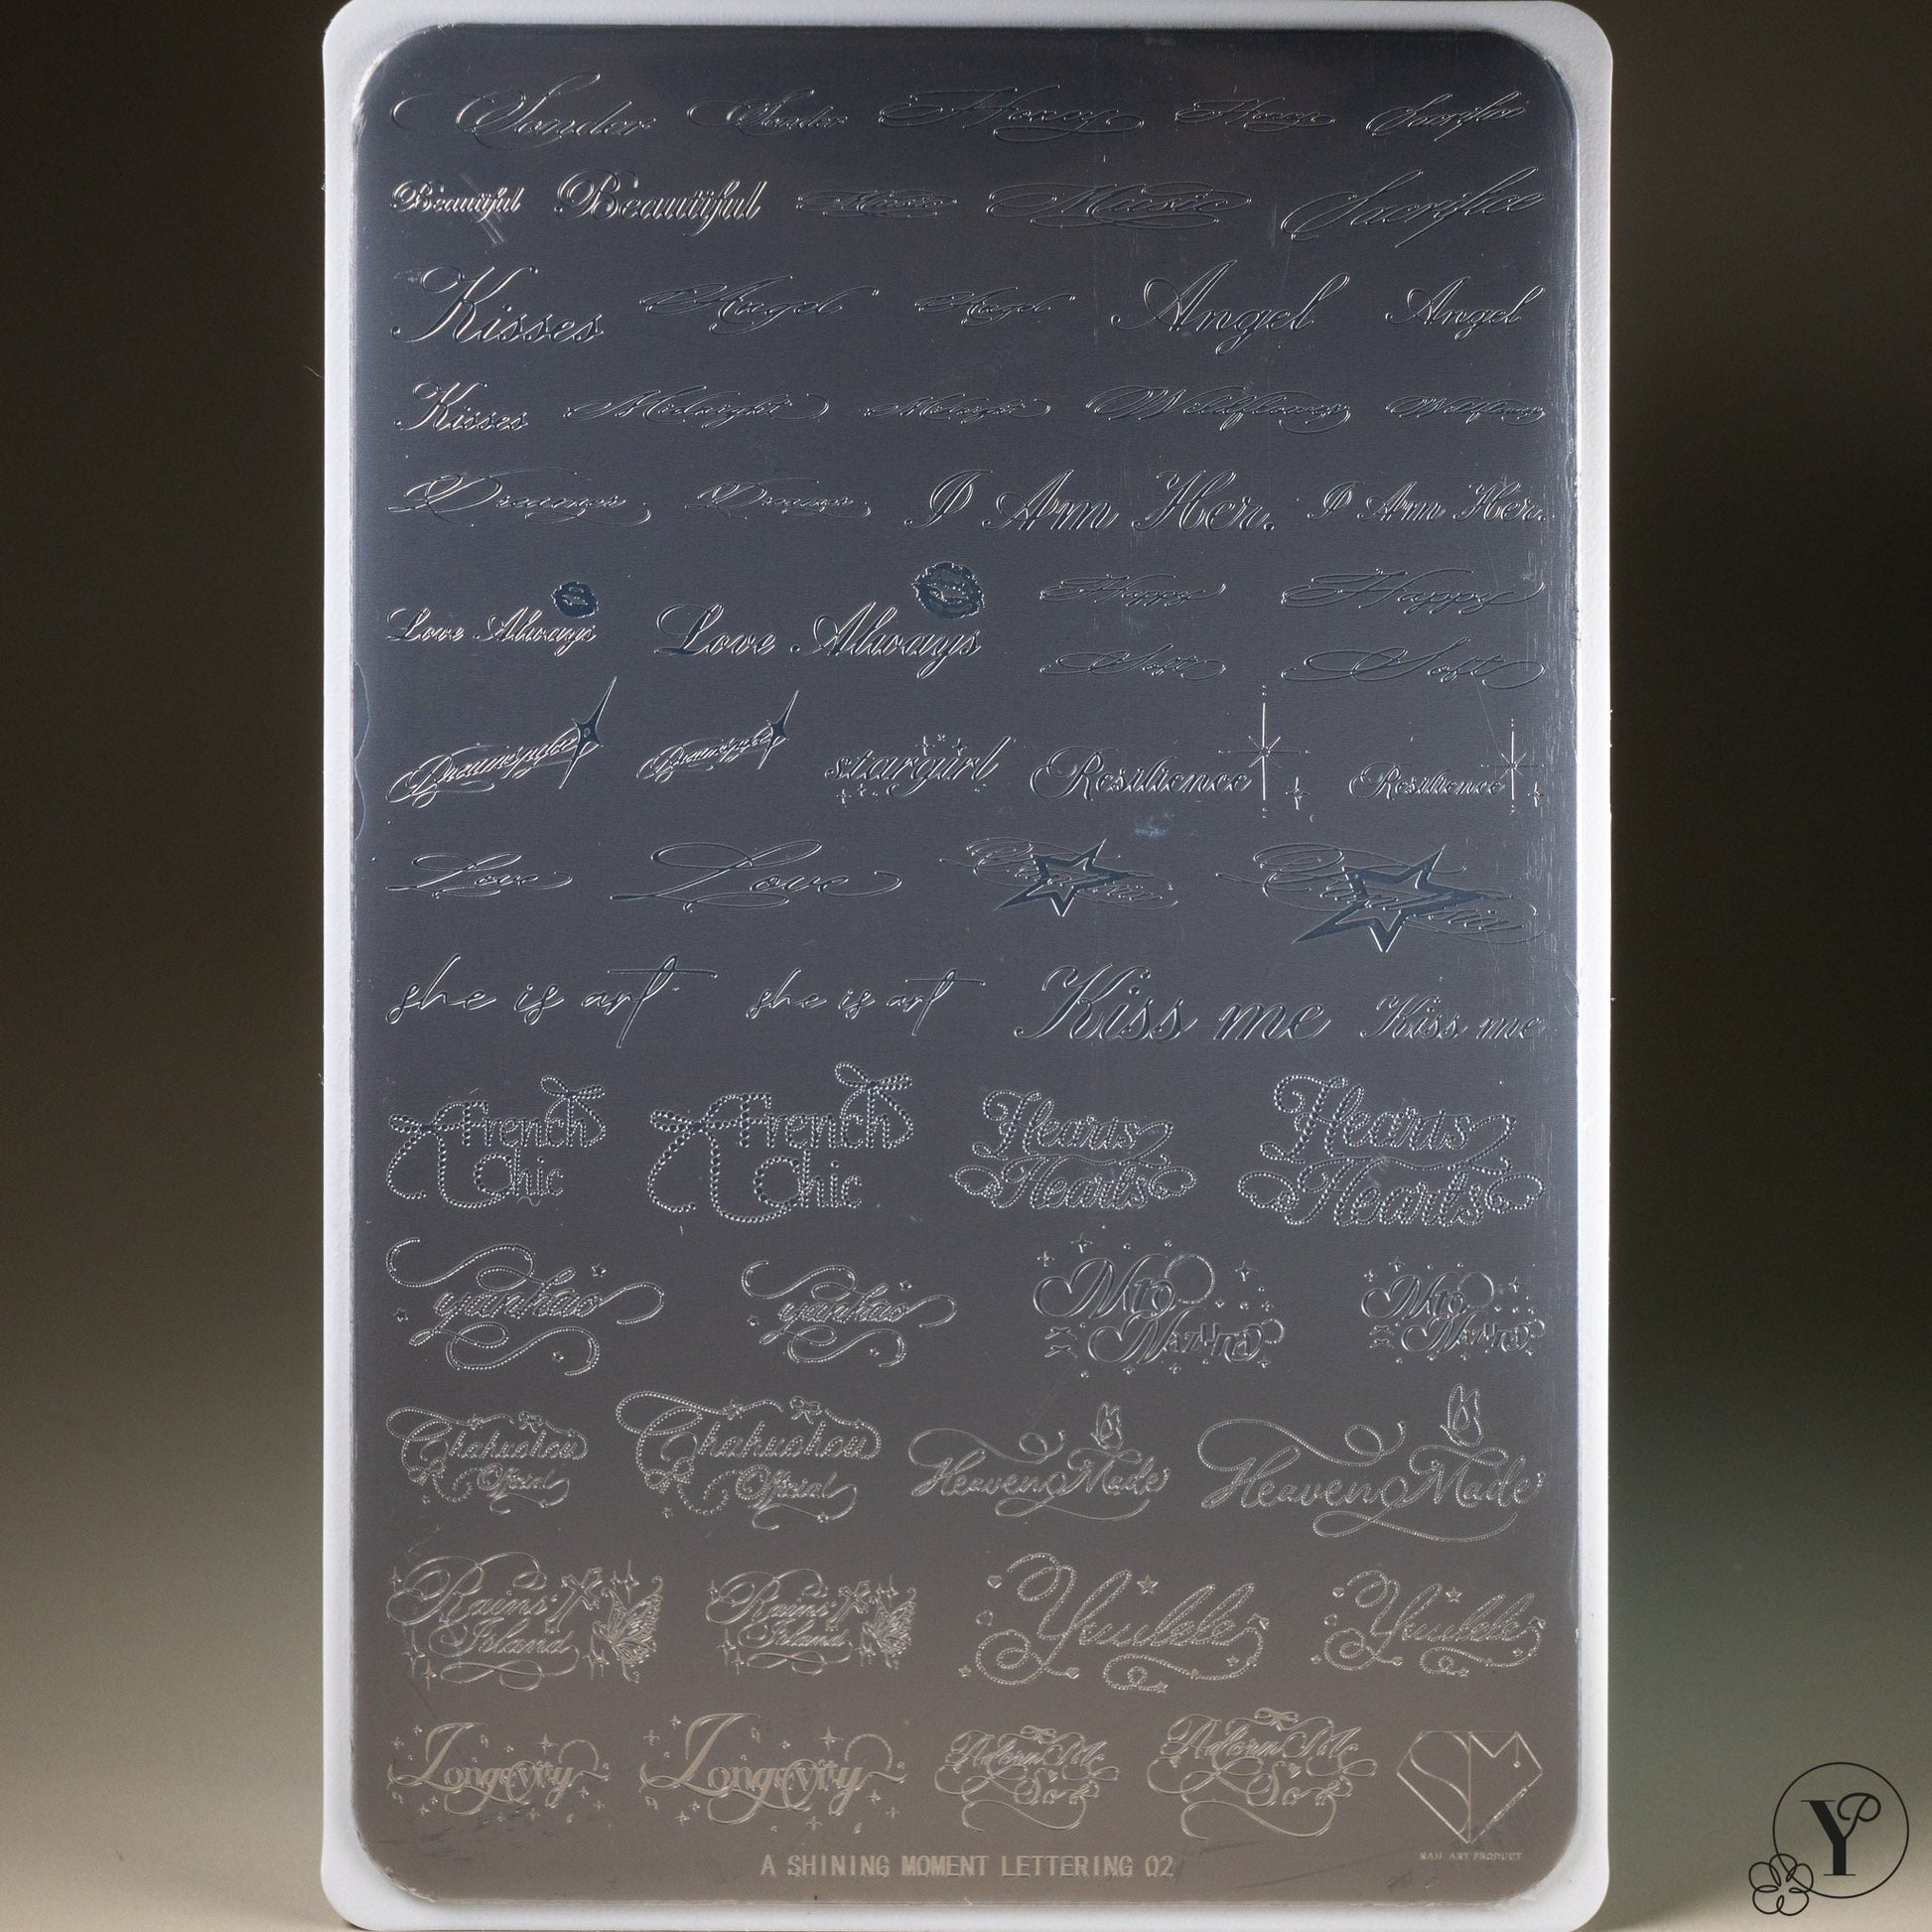 Sonder Sonder Honey Honey Sacrifice
Beautiful Beautiful Music Music Sacrifice
Kisses Angel Angel Angel Angel
Kisses Midnight Midnight Wildflower Wildflower
Dreamer Dreamer I Am Her. I Am Her.
Happy Happy
Love Always Love Always
Soft Soft
stargirl Resilience Resilience
Love Love
she is art she is art Kiss me Kiss me
French French Hearts Hearts
Chic Chic Hearts Hearts
yankao yankao
Official Official Heaven Made Heaven Made
Rains' Rains'
Island Island
Longevity Longevity Adorn Me Adorn Me
SM
NAIL ART PRODUCT
A SHINING MOMENT LETTERING 02
YP